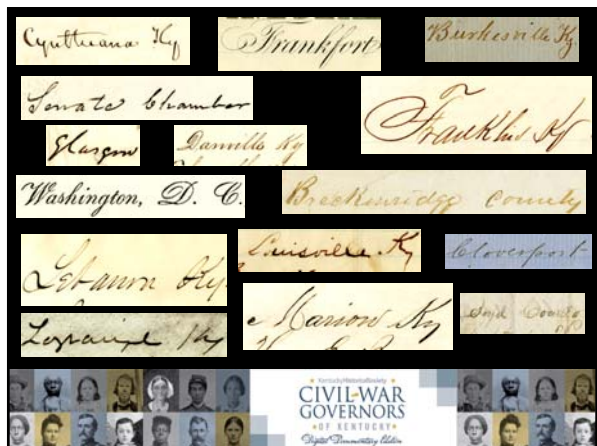 Cynthiana Ky
Frankfort
Burkesville Ky.
Senate Chamber
Franklin Ky
Glasgow
Danville Ky
Washington, D. C.
Breckinridge County
Lebanon Ky.
Louisville Ky
Cloverport
Marion Ky
Ky
County
KentuckyHistoricalSociety
CIVIL WAR
GOVERNORS
OF KENTUCKY
Digital Documentary Edition